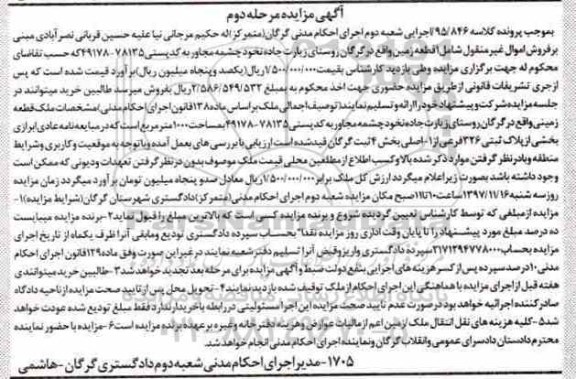 آگهی مزایده مرحله دوم
بموجب پرونده کلاسه ۹۵/۸۴۶/اجرایی شعبه دوم اجرای احکام مدنی گرگان(متمرکز)له حکیم مرجانی نیا علیه حسین قربانی نصرآبادی مبنی
بر فروش اموال غیر منقول شامل۱قطعه زمین واقع در گرگان روستای زیارت جاده نخود چشمه مجاور به کدپستی ۷۸۱۳۵-۴۹۱۷۸که حسب تقاضای
محکوم له جهت برگزاری مزایده وطی بازدید کارشناس بقیمت۱/۵۰۰/۰۰۰/۰۰۰ریال(یکصد وپنجاه میلیون ریال)برآورد قیمت شده است که پس
ازجری تشریفات قانونی از طریق مزایده حضوری جهت اخذ محکوم به بمبلغ ۲/۵۸۶/۵۴۹/۵۳۲ریال بفروش میرسد طالبین خرید میتوانند در
جلسه مزایده شرکت و پیشنهاد خود را ارائه و تسلیم نمایند(توصیف اجمالی ملک بر اساس ماده۱۳۸قانون اجرای احکام مدنی)مشخصات ملک قطعه
زمینی واقع در گرگان روستای زیارت جاده نخود چشمه مجاور به کدپستی ۷۸۱۳۵-۴۹۱۷۸بمساحت۱۰۰۰مترمربع است که در مبایعه نامه عادی ابرازی
بخشی از پلاک ثبتی ۳۲۶فرعی از۱-اصلی بخش ۴ثبت گرگان قید شده است ارزیابی با بررسی های بعمل آمده وباتوجه به موقعیت و کاربری وشرایط
منطقه و بادر نظر گرفتن موارد ذکر شده بالا و کسب اطلاع از مطلعین محلی قیمت ملک موصوف بدون در نظر گرفتن تعهدات ودیونی که ممکن است
وجود داشته باشد بصورت زیر اعلام میگردد ارزش کل ملک برابر۱/۵۰۰/۰۰۰/۰۰۰ریال معادل صدو پنجاه میلیون تومان برآورد میگردد زمان مزایده
روز سه شنبه۱۳۹۷/۱۱/۱۶ساعت۱۰تا۱۱صبح مکان مزایده شعبه دوم اجرای احکام مدنی(متمرکز)دادگستری شهرستان گرگان(شرایط مزایده)۱-
مزایده از مبلغی که توسط کارشناس تعیین گردیده شروع و برنده مزایده کسی است که بالاترین مبلغ را قبول نماید۲-برنده مزایده میبایست
ده درصد مبلغ مورد پیشنهاد را تا پایان وقت اداری روز مزایده نقدا"بحساب سپرده دادگستری تودیع ومابقی آنرا ظرف یکماه از تاریخ اجرای
مزایده بحساب سپرده دادگستری واریزوقبض آنرا تسلیم دفتر شعبه نمایند در غیر این صورت وفق ماده۱۲۹قانون اجرای احکام
مدنی۱۰درصد سپرده پس از کسر هزینه های اجرایی بنفع دولت ضبط و آگهی مزایده برای مرحله بعد تجدید خواهد شد۳-طالبین خرید میتوانندی
هفته قبل از اجرای مزایده با هماهنگی این اجرای احکام از ملک توقیف شده بازدید نمایند۴-تحویل محل پس از تایید صحت مزایده از ناحیه دادگاه
صادر کننده اجرائیه خواهد بود در صورت عدم تایید صحت مزایده این اجرا مسئولیتی در رابطه باخریدار ندارد فقط مبلغ تودیع شده عودت خواهد
شد۵-کلیه هزینه های نقل انتقال ملک از زمین اعم از مالیات عوارض و هزینه دفترخانه و غیره بر عهده برنده مزایده است۶-مزایده با حضور نماینده
محترم دادستان دادسرای عمومی وانقلاب گرگان و نماینده اجرای احکام مدنی انجام خواهد شد.
۱۷۰۵-مدیر اجرای احکام مدنی شعبه دوم دادگستری گرگان-هاشمی